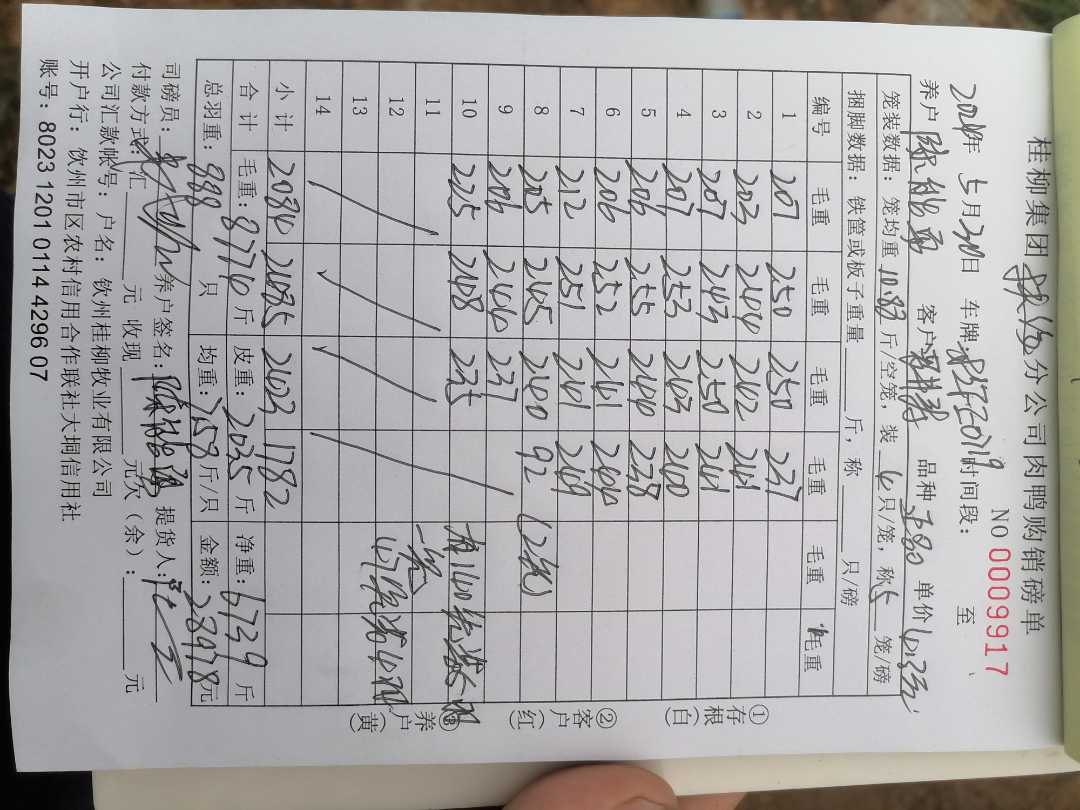 桂柳集团 分公司肉鸭购销磅单
NO 0009917
2024年 5月30日 车牌: 时间段: 至
养户 客户 品种 单价 4.3元
笼装数据: 笼均重 10.83 斤/空笼, 装 只/笼, 称 5 笼/磅
捆脚数据: 铁筐或板子重量 斤, 称 只/磅
编号 毛重 毛重 毛重 毛重 毛重 毛重
1 207 250 250 237
2 203 244 242 241
3 207 243 250 241
4 207 253 243 240
5 206 255 244 238
6 206 252 241 244
7 212 251 241 249
8 205 245 240 92 (2笼)
9 206 244 237
10 225 248 235
11
12
13
14
小计 2084 2485 2423 1782
合计 毛重: 8774 斤 皮重: 2035 斤 净重: 6739 斤
总羽重: 888 只 均重: 7.58 斤/只 金额: 28978 元
司磅员: 养户签名: 提货人:
付款方式: 汇 元 收现 元欠(余): 元
公司汇款帐号: 户名: 钦州桂柳牧业有限公司
开户行: 钦州市区农村信用合作联社大垌信用社
账号: 8023 1201 0114 4296 07
①存根(白)
②客户(红)
③养户(黄)